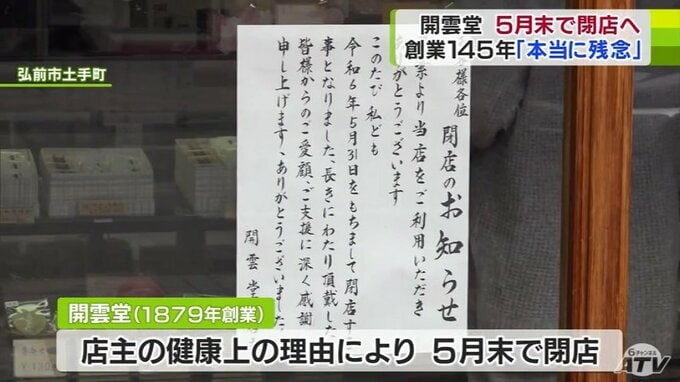 開雲堂 5月末で閉店へ
創業145年「本当に残念」
弘前市土手町
様各位
閉店のお知らせ
より当店をご利用いただき
ありがとうございます
このたび私ども
令和6年5月31日をもちまして閉店す
事となりました、長きにわたり頂戴した
皆様からのご愛顧、ご支援に深く感謝
申し上げます、ありがとうございました、
開雲堂
開雲堂(1879年創業)
店主の健康上の理由により 5月末で閉店
6チャンネル
ATV